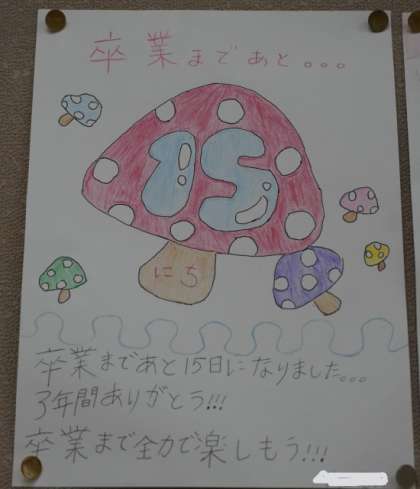 卒業まであと。。。
15
にち
卒業まであと15日になりました。。。
3年間ありがとう!!!
卒業まで全力で楽しもう!!!